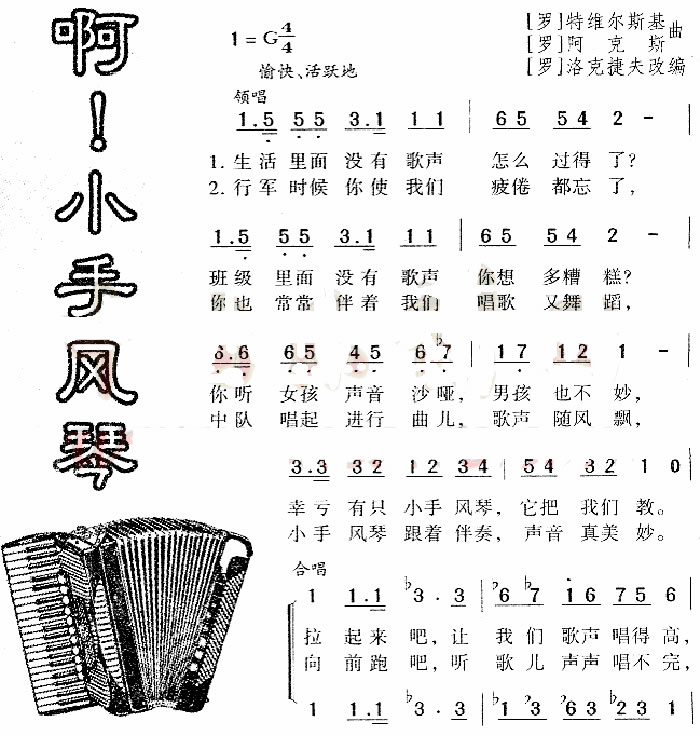 啊！小手风琴
1=G 4/4
愉快、活跃地
[罗]特维尔斯基
[罗]阿克斯 曲
[罗]洛克捷夫改编
领唱
1.5 55 3.1 11 | 65 54 2 -
1.生活里面没有歌声 怎么过得了?
2.行军时候你使我们 疲倦都忘了,
1.5 55 3.1 11 | 65 54 2 -
班级里面没有歌声 你想多糟糕?
你也常常伴着我们 唱歌又舞蹈,
6.6 65 45 6♭7 | 17 12 1 -
你听女孩声音沙哑, 男孩也不妙,
中队唱起进行曲儿, 歌声随风飘,
3.3 32 12 34 | 54 32 1 0
幸亏有只小手风琴, 它把我们教。
小手风琴跟着伴奏, 声音真美妙。
合唱
1 1.1 ♭3 · 3 | ♭6 ♭7 16 75 6
拉起来吧, 让我们歌声唱得高,
向前跑吧, 听歌儿声声唱不完,
1 1.1 ♭3 · 3 | ♭1 ♭3 ♭63 ♭23 1